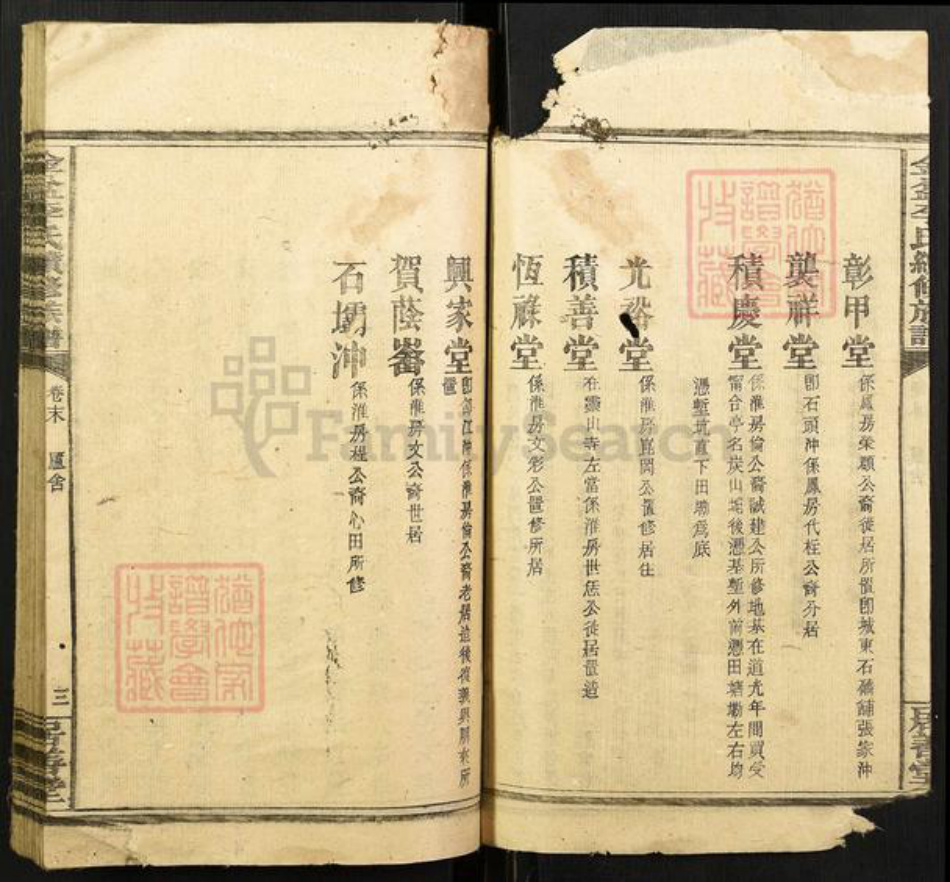 彰甲堂 係鳳房榮顯公裔徙居所置卽城東石磻舖張家沖
襲祥堂 卽石頭沖係鳳房代柱公裔分居
積慶堂 係淮房倫公裔誠建公所修地基在道光年間買受
甯合亭名炭山坨後憑基塹外前憑田塘墈左右均
憑塹坑直下田墈爲底
光裕堂 係淮房崑岡公置修居住
積善堂 在靈山寺左當係淮房世恁公徙居置造
恆祿堂 係淮房文彩公置修所居
興家堂 卽江沖係淮房倫公裔老居造後義興朋泰所
置
賀蔭崙 係淮房文公裔世居
石壩沖 係淮房程公裔心田所修
李氏續修族譜
卷末 廬舍
三
FamilySearch